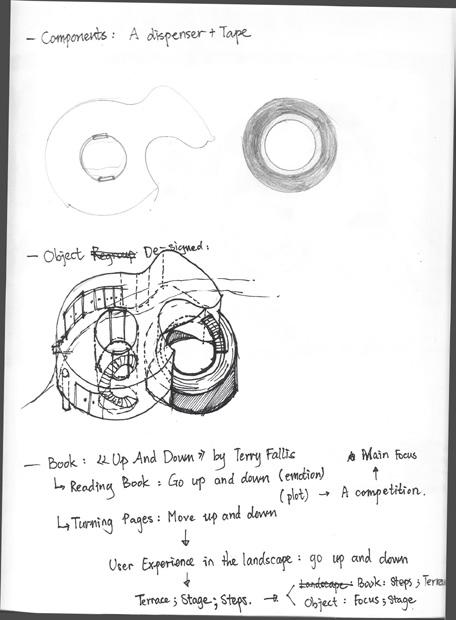 - Components: A dispenser + Tape
- Object Regroup De-signed:
- Book: 《Up And Down》 by Terry Fallis
↳ Reading Book: Go up and down (emotion)
(plot) → A competition.
↑
Main Focus
↳ Turning Pages: Move up and down
↓
User Experience in the landscape: go up and down
↓
Terrace; Stage; Steps. →
Landscape: Book: Steps; Terra
Object: Focus; Stage